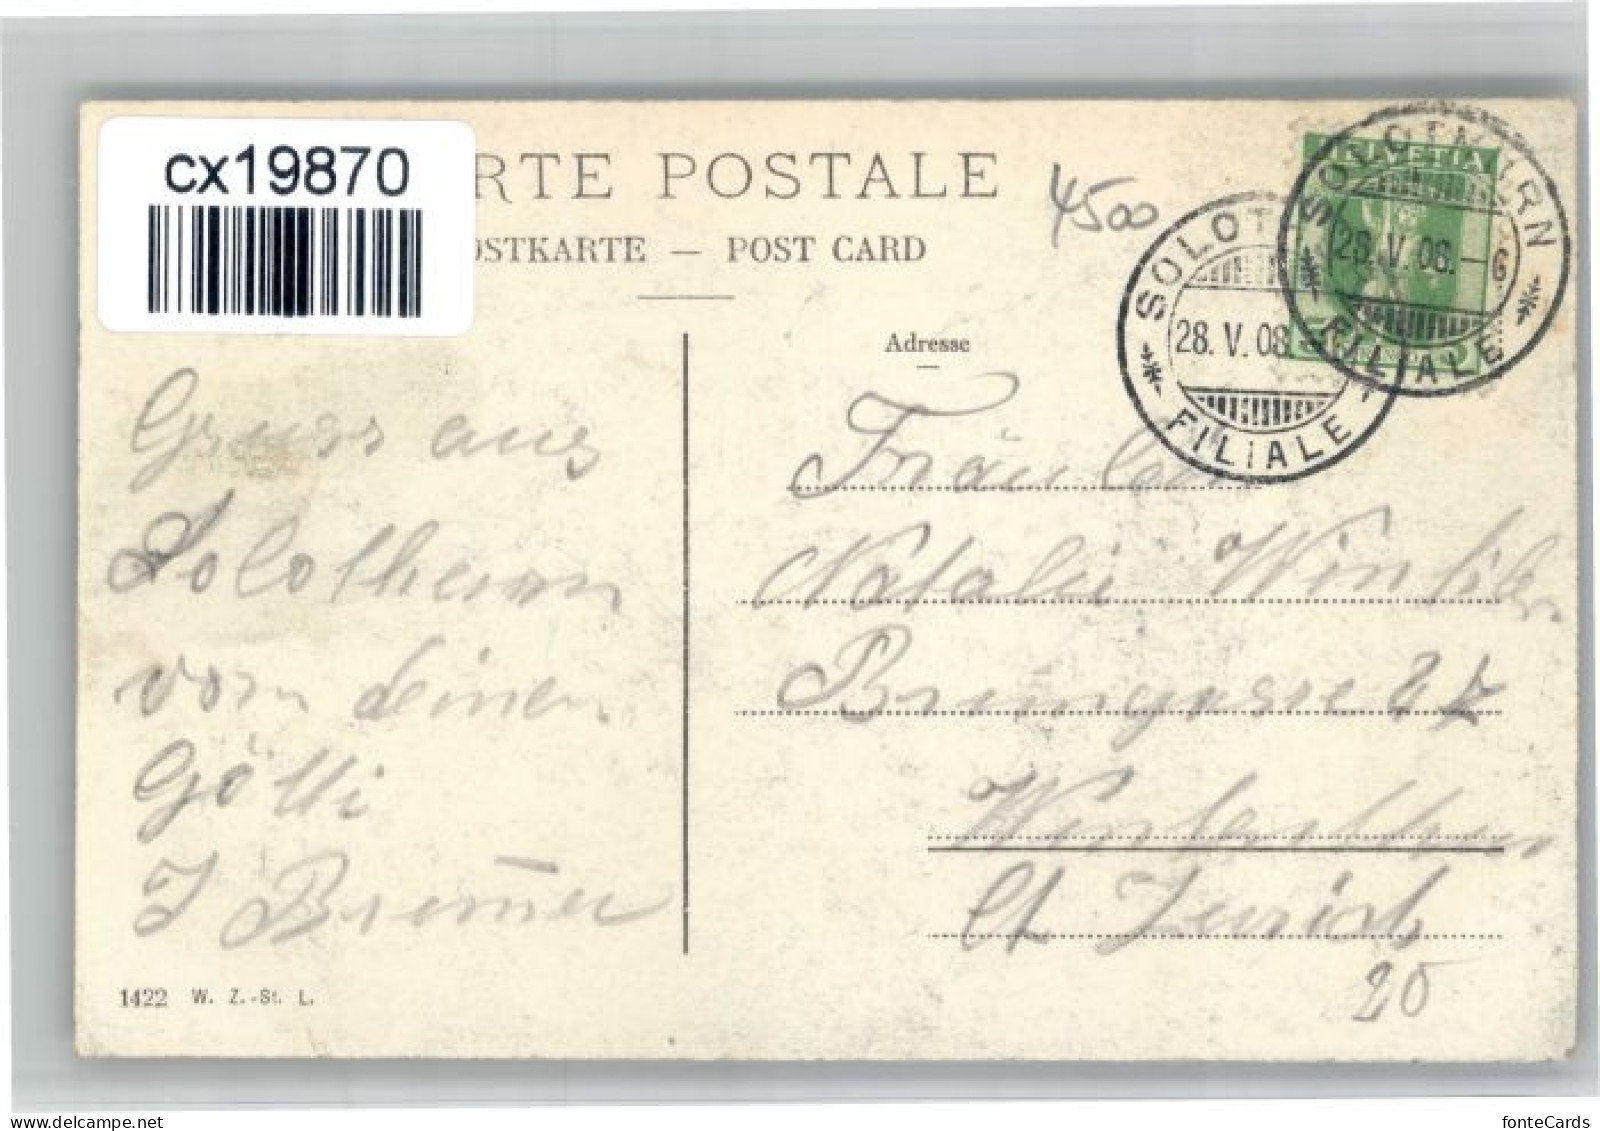 cx19870
RTE POSTALE
OSTKARTE — POST CARD
4500
SOLOTHURN
28. V. 08. — 6
FILIALE
HELVETIA
SOLOT
28. V. 08
FILIALE
Adresse
Gruss aus
Solothurn
von deinem
Götti
J Brunner
Fräulein
Natalie
Brungasse 27
Winterthur
Ct Zürich
20
1422 W. Z.-St. L.
fonteCards